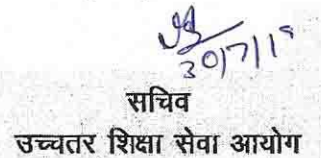 30/7/19
सचिव
उच्चतर शिक्षा सेवा आयोग